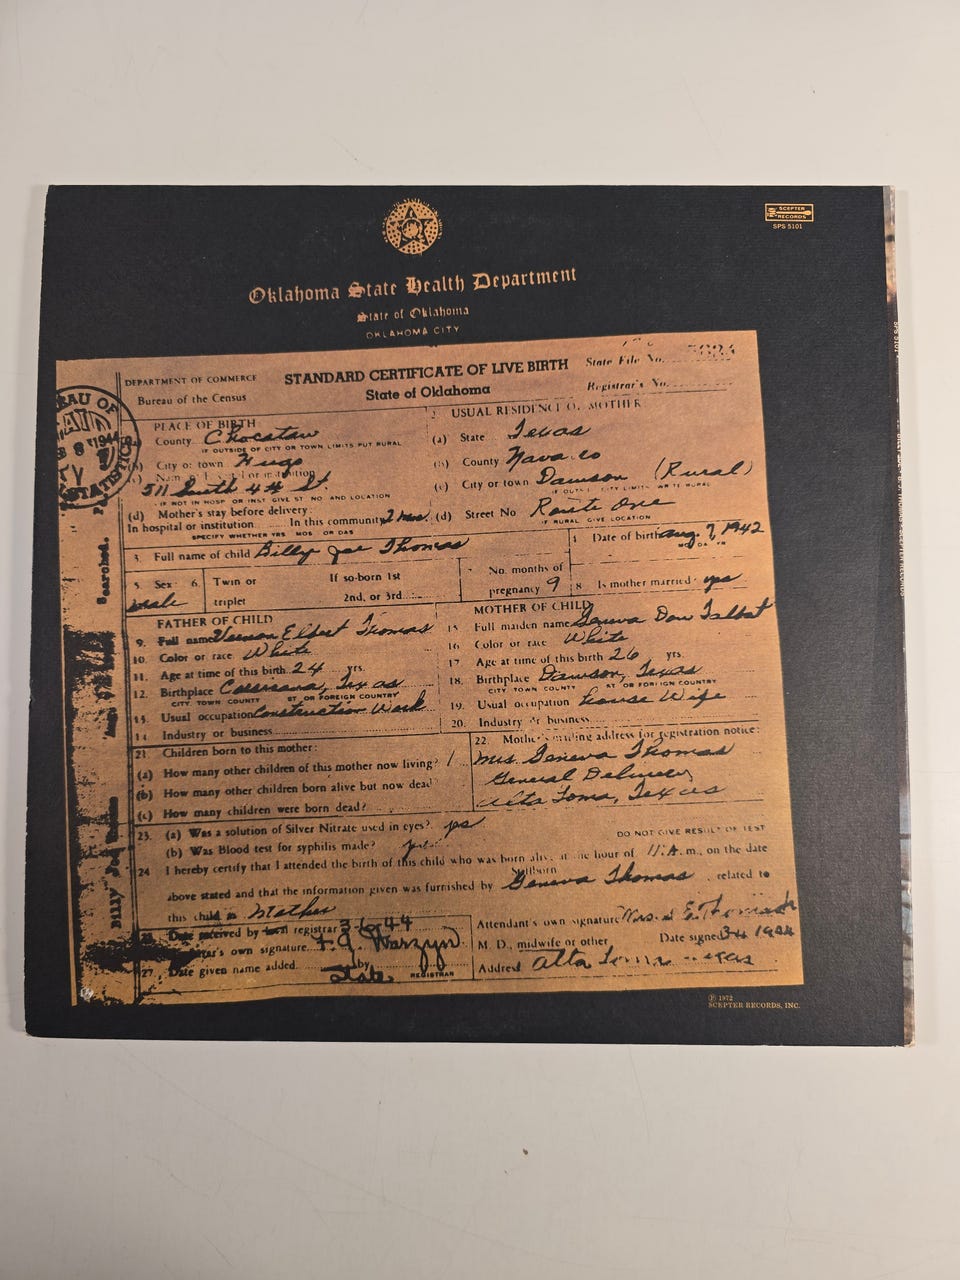 SCEPTER
RECORDS
SPS 5101
Oklahoma State Health Department
State of Oklahoma
OKLAHOMA CITY
DEPARTMENT OF COMMERCE
Bureau of the Census
STANDARD CERTIFICATE OF LIVE BIRTH
State of Oklahoma
State File No.
Registrar's No.
PLACE OF BIRTH
County Choctaw
IF OUTSIDE OF CITY OR TOWN LIMITS PUT RURAL
City or town Hugo
511 South 4th St.
IF NOT IN HOSP OR INST GIVE ST NO AND LOCATION
(d) Mother's stay before delivery:
In hospital or institution In this community
SPECIFY WHETHER YRS MOS OR DAS
2 USUAL RESIDENCE OF MOTHER
(a) State Texas
(b) County Navarro
(c) City or town Dawson (Rural)
(d) Street No Route One
IF RURAL GIVE LOCATION
3. Full name of child Billy Joe Thomas
4 Date of birth Aug. 7, 1942
MO DA YR
5 Sex Male
6. Twin or triplet
If so-born 1st
2nd, or 3rd
7 No. months of pregnancy 9
8 Is mother married yes
FATHER OF CHILD
9. Full name Vernon Elbert Thomas
10. Color or race White
11. Age at time of this birth 24 yrs.
12. Birthplace Corsicana, Texas
CITY. TOWN COUNTY ST OR FOREIGN COUNTRY
13. Usual occupation Construction Work
14 Industry or business
MOTHER OF CHILD
15 Full maiden name Geneva Don Talbot
16 Color or race White
17 Age at time of this birth 26 yrs.
18. Birthplace Dawson, Texas
CITY TOWN COUNTY ST OR FOREIGN COUNTRY
19. Usual occupation House Wife
20. Industry or business
21 Children born to this mother:
(a) How many other children of this mother now living? 1
(b) How many other children born alive but now dead?
(c) How many children were born dead?
22. Mother's mailing address for registration notice:
Mrs Geneva Thomas
General Delivery
Alta Loma, Texas
23. (a) Was a solution of Silver Nitrate used in eyes? yes
(b) Was Blood test for syphilis made? yes
DO NOT GIVE RESULT OF TEST
24 I hereby certify that I attended the birth of this child who was born alive at the hour of 11:A.m., on the date
Stillborn
above stated and that the information given was furnished by Geneva Thomas, related to
this child as Mother
Date received by local registrar 3-6-44
's own signature F. J. Warzyn
REGISTRAR
27. Date given name added by
State
Attendant's own signature
M. D., midwife or other Date signed
Address Alta Loma Texas
BUREAU OF
STATISTICS
Searched.
Billy Joe
℗ 1972
SCEPTER RECORDS, INC.